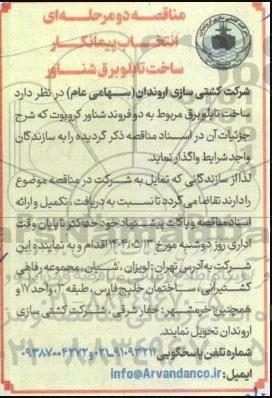 مناقصه دو مرحله‌ای
انتخاب پیمانکار
ساخت تابلو برق شناور
شرکت کشتی سازی اروندان (سهامی عام) در نظر دارد
ساخت تابلو برق مربوط به دو فروند شناور کروبوت که شرح
جزئیات آن در اسناد مناقصه ذکر گردیده را به سازندگان
واجد شرایط واگذار نماید.
لذا از سازندگانی که تمایل به شرکت در مناقصه موضوع
را دارند تقاضا می گردد نسبت به دریافت، تکمیل و ارائه
اسناد مناقصه و پاکات پیشنهاد خود حداکثر تا پایان وقت
اداری روز دوشنبه مورخ ۱۴۰۴/۰۵/۱۳ اقدام و به نماینده این
شرکت به آدرس تهران: لویزان، شیان، مجموعه رفاهی
کشتیرانی، ساختمان خلیج فارس، طبقه ۳، واحد ۱۷ و
همچنین خرمشهر: حفار شرقی، شرکت کشتی سازی
اروندان تحویل نمایند.
شماره تلفن پاسخگویی: ۰۲۱-۹۱۰۹۳۲۱۱ و ۰۹۳۸۷۰۰۴۳۷۲
ایمیل: info@Arvandanco.ir